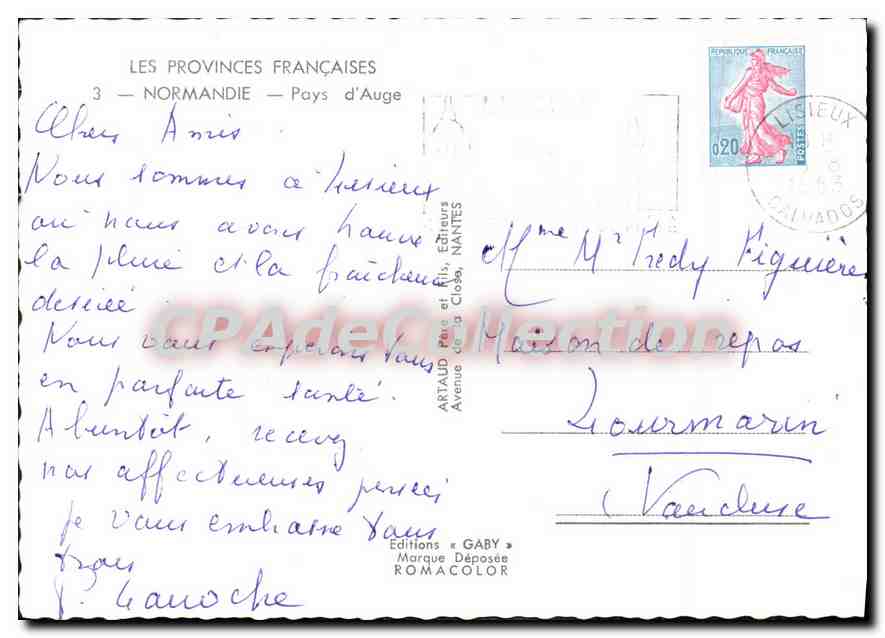 LES PROVINCES FRANÇAISES
3 — NORMANDIE — Pays d'Auge
Chers Amis.
Nous sommes à Lisieux
où nous avons trouvé
la pluie et la fraîcheur
désirée.
Nous vous espérons tous
en parfaite santé.
A bientôt, recevez
nos affectueuses pensées
je vous embrasse tous
trois
ARTAUD Père et Fils, Editeurs
Avenue de la Close, NANTES
REPUBLIQUE FRANÇAISE
0,20
POSTES
LISIEUX
CALVADOS
Mme Mr Fredy Figuière
Maison de repos
Lourmarin
Vaucluse
Editions « GABY »
Marque Déposée
ROMACOLOR
CPAdeCollection